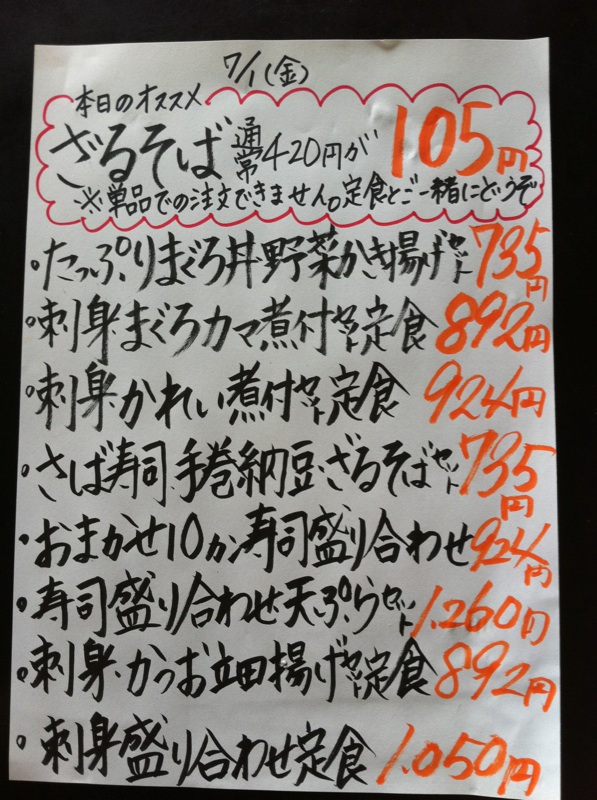 7/1(金)
本日のオススメ
ざるそば 通常420円が 105円
※単品での注文できません。定食とご一緒にどうぞ
・たっぷりまぐろ丼野菜かき揚げセット 735円
・刺身・まぐろカマ煮付セット定食 892円
・刺身・かれい煮付セット定食 924円
・さば寿司手巻納豆・ざるそばセット 735円
・おまかせ10カン寿司盛り合わせ 924円
・寿司盛り合わせ天ぷらセット 1.260円
・刺身・かつお立田揚げセット定食 892円
・刺身盛り合わせ定食 1.050円